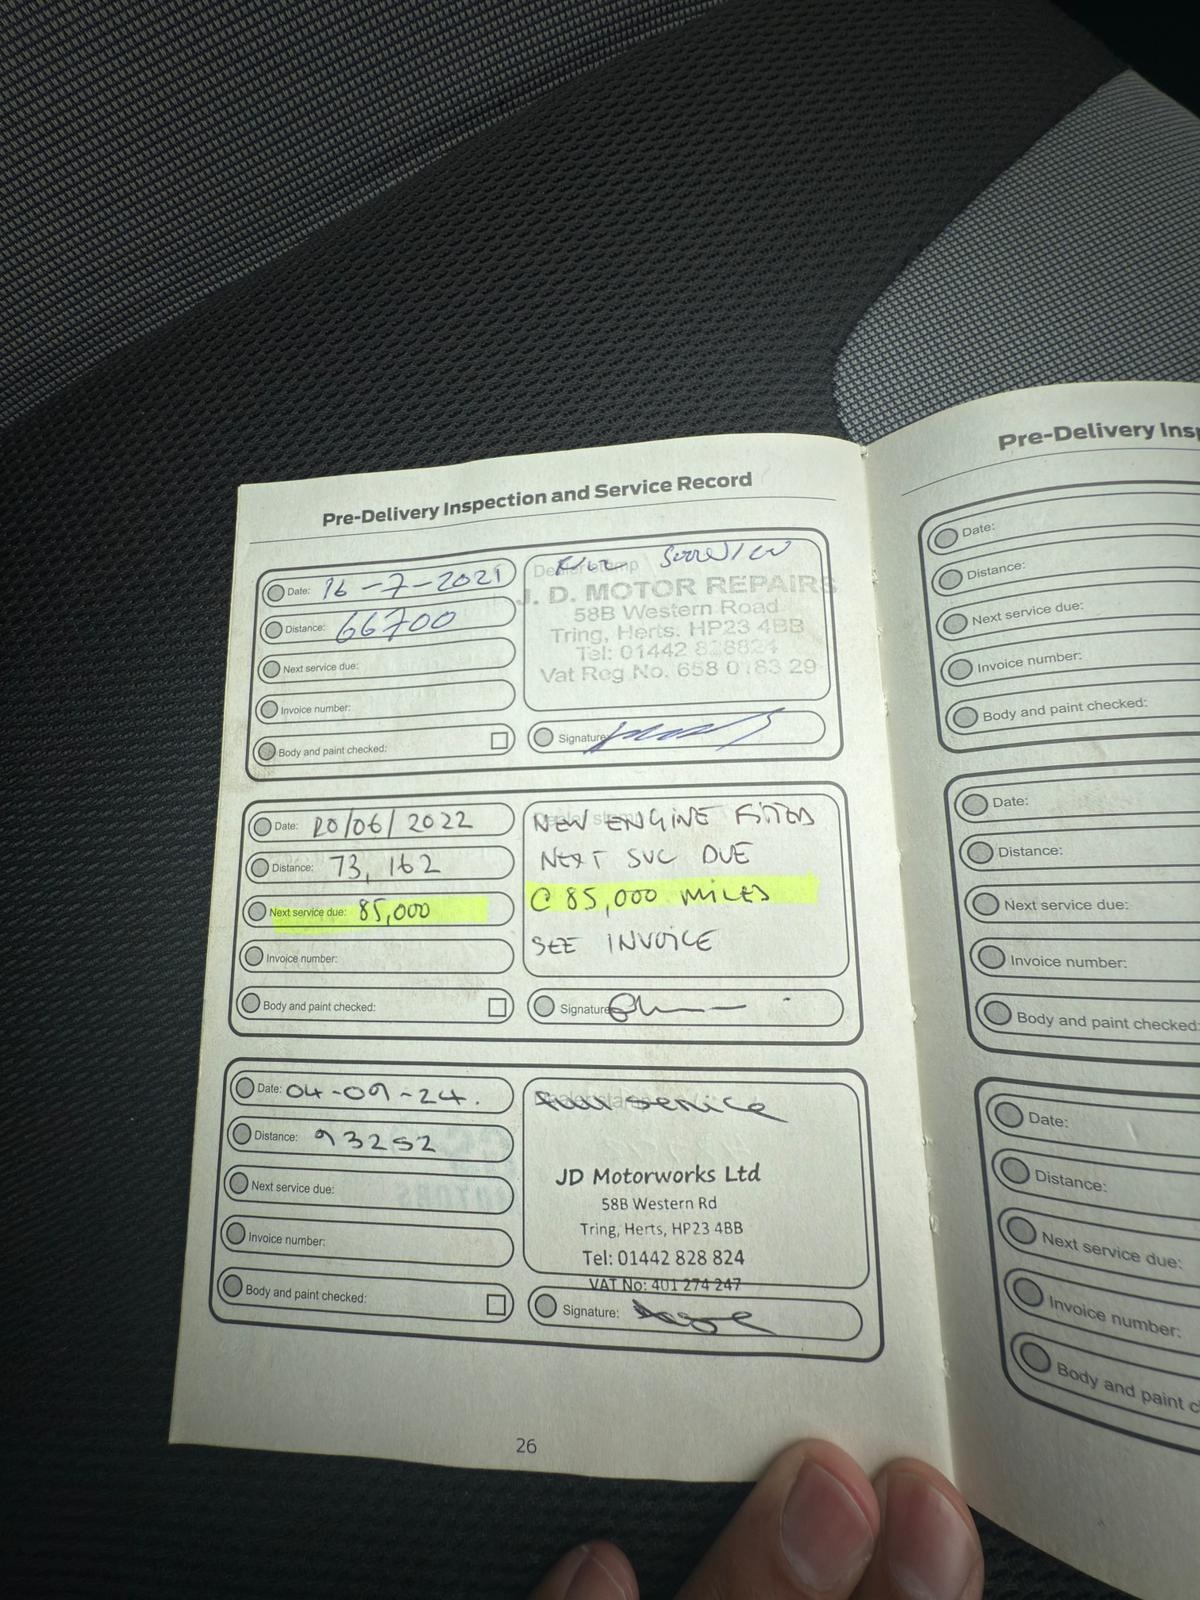 Pre-Delivery Inspection and Service Record
Date: 16-7-2021
Distance: 66700
Next service due:
Invoice number:
Body and paint checked:
Dealer stamp
J. D. MOTOR REPAIRS
58B Western Road
Tring, Herts. HP23 4BB
Tel: 01442 828824
Vat Reg No. 658 0183 29
Signature
Date: 20/06/2022
Distance: 73,162
Next service due: 85,000
Invoice number:
Body and paint checked:
NEW ENGINE FITTED
NEXT SVC DUE
@ 85,000 MILES
SEE INVOICE
Signature
Date: 04-09-24.
Distance: 93252
Next service due:
Invoice number:
Body and paint checked:
service
JD Motorworks Ltd
58B Western Rd
Tring, Herts, HP23 4BB
Tel: 01442 828 824
VAT No: 401 274 247
Signature:
26
Pre-Delivery
Date:
Distance:
Next service due:
Invoice number:
Body and paint checked:
Date:
Distance:
Next service due:
Invoice number:
Body and paint checked:
Date:
Distance:
Next service due:
Invoice number:
Body and paint